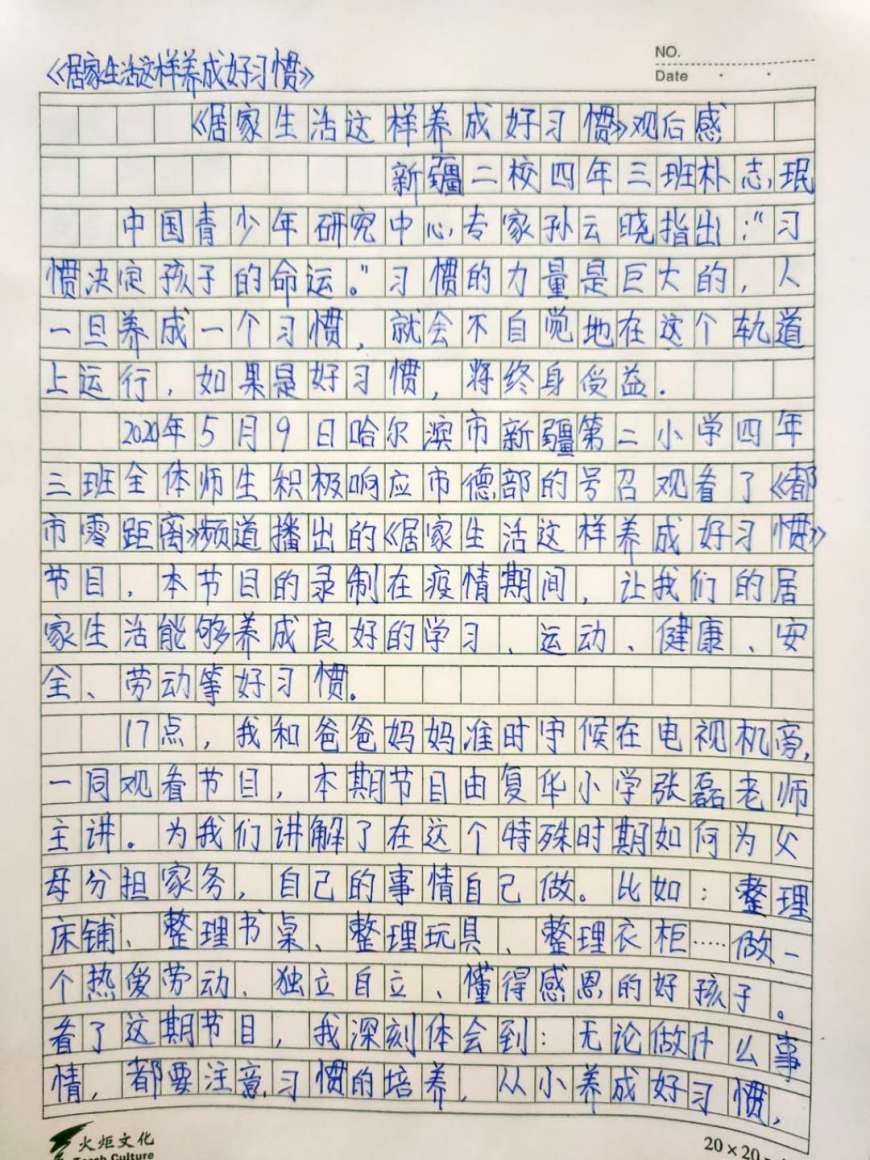 NO.
Date
《居家生活这样养成好习惯》
《居家生活这样养成好习惯》观后感
新疆二校四年三班朴志珉
中国青少年研究中心专家孙云晓指出:“习
惯决定孩子的命运。”习惯的力量是巨大的,人
一旦养成一个习惯,就会不自觉地在这个轨道
上运行,如果是好习惯,将终身受益.
2020年5月9日哈尔滨市新疆第二小学四年
三班全体师生积极响应市德部的号召观看了《都
市零距离》频道播出的《居家生活这样养成好习惯》
节目,本节目的录制在疫情期间,让我们的居
家生活能够养成良好的学习、运动、健康、安
全、劳动等好习惯。
17点,我和爸爸妈妈准时守候在电视机旁,
一同观看节目,本期节目由复华小学张磊老师
主讲。为我们讲解了在这个特殊时期如何为父
母分担家务,自己的事情自己做。比如:整理
床铺、整理书桌、整理玩具、整理衣柜……做一
个热爱劳动、独立自立、懂得感恩的好孩子。
看了这期节目,我深刻体会到:无论做什么事
情,都要注意习惯的培养,从小养成好习惯,
火炬文化
Torch Culture
20×20